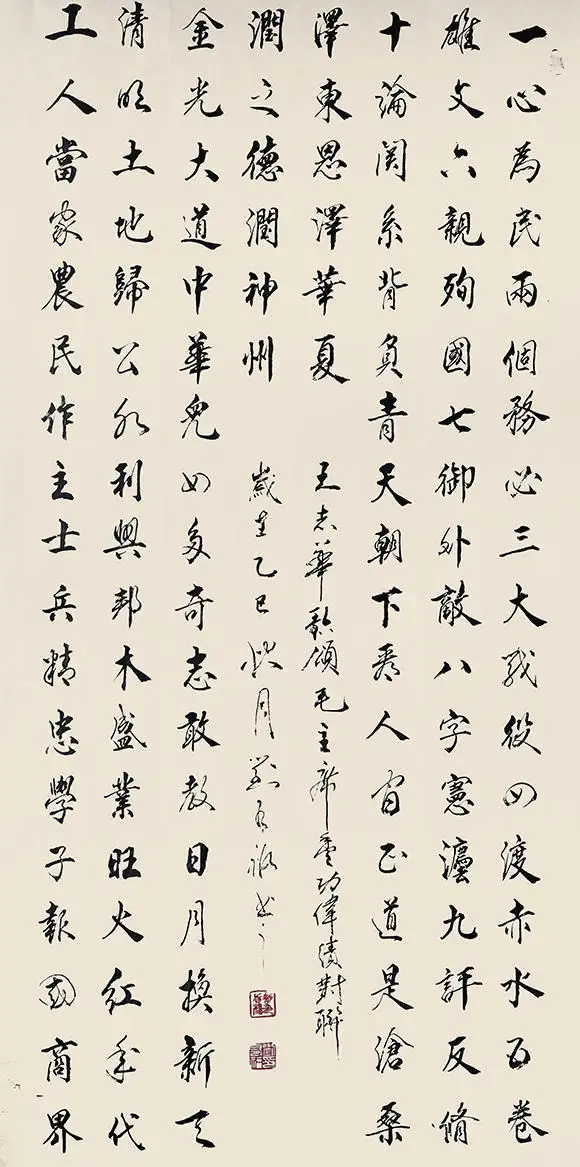 一心為民兩個務必三大戰役四渡赤水五卷
雄文六親殉國七御外敵八字憲灋九評反脩
十論関系背負青天朝下看人间正道是滄桑
澤東恩澤華夏
王志華歌頌毛主席豐功偉績對聯
工人當家農民作主士兵精忠學子報國商界
清明土地歸公水利興邦木盛業旺火紅年代
金光大道中華兒女多奇志敢教日月換新天
潤之德潤神州
歲在乙巳秋月